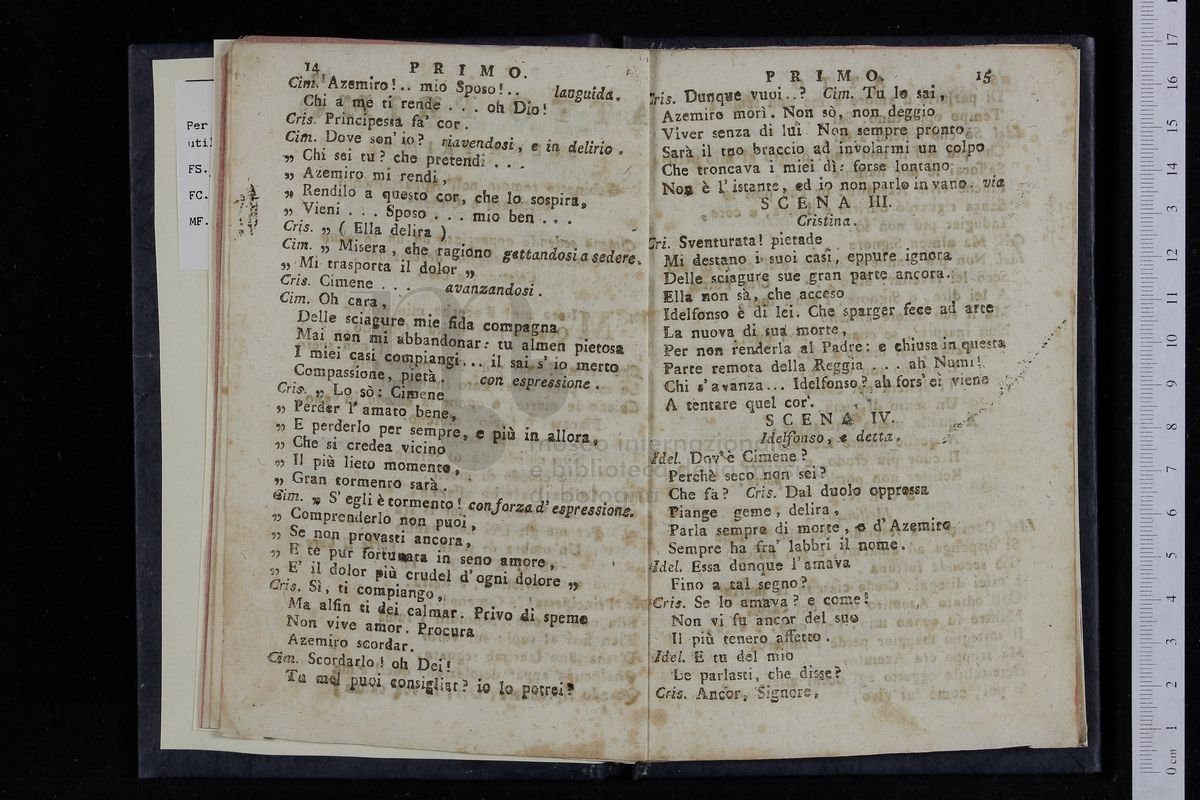 14 PRIMO.
Cim. Azemiro!.. mio Sposo!.. languida.
Chi a me ti rende . . . oh Dio!
Cris. Principessa fa' cor.
Cim. Dove son' io? riavendosi, e in delirio.
„ Chi sei tu? che pretendi . . .
„ Azemiro mi rendi,
„ Rendilo a questo cor, che lo sospira,
„ Vieni . . . Sposo . . . mio ben . . .
Cris. „ ( Ella delira )
Cim. „ Misera, che ragiono gettandosi a sedere.
„ Mi trasporta il dolor „
Cris. Cimene . . . avanzandosi.
Cim. Oh cara,
Delle sciagure mie fida compagna
Mai non mi abbandonar: tu almen pietosa
I miei casi compiangi... il sai s' io merto
Compassione, pietà. con espressione.
Cris. „ Lo sò: Cimene
„ Perder l' amato bene,
„ E perderlo per sempre, e più in allora,
„ Che si credea vicino
„ Il più lieto momento,
„ Gran tormento sarà.
Cim. „ S' egli è tormento! con forza d' espressione.
„ Comprenderlo non puoi,
„ Se non provasti ancora,
„ E te pur fortunata in seno amore,
„ E' il dolor più crudel d' ogni dolore „
Cris. Sì, ti compiango,
Ma alfin ti dei calmar. Privo di speme
Non vive amor. Procura
Azemiro scordar.
Cim. Scordarlo! oh Dei!
Tu mel puoi consigliar? io lo potrei?
PRIMO. 15
Cris. Dunque vuoi..? Cim. Tu lo sai,
Azemiro morì. Non sò, non deggio
Viver senza di lui Non sempre pronto
Sarà il tuo braccio ad involarmi un colpo
Che troncava i miei dì: forse lontano
Non è l' istante, ed io non parlo in vano. via
SCENA III.
Cristina.
Cri. Sventurata! pietade
Mi destano i suoi casi, eppure ignora
Delle sciagure sue gran parte ancora.
Ella non sà, che acceso
Idelfonso è di lei. Che sparger fece ad arte
La nuova di sua morte,
Per non renderla al Padre: e chiusa in questa
Parte remota della Reggia . . . ah Numi!
Chi s' avanza... Idelfonso? ah fors' ei viene
A tentare quel cor.
SCENA IV.
Idelfonso, e detta.
Idel. Dov' è Cimene?
Perchè seco non sei?
Che fa? Cris. Dal duolo oppressa
Piange geme, delira,
Parla sempre di morte, e d' Azemiro
Sempre ha fra' labbri il nome.
Idel. Essa dunque l' amava
Fino a tal segno?
Cris. Se lo amava? e come!
Non vi fu ancor del suo
Il più tenero affetto.
Idel. E tu del mio
Le parlasti, che disse?
Cris. Ancor, Signore,
Per
util
FS.
FC.
MF.
museo internazionale
e biblioteca della musica
di bologna
0 cm 1 2 3 4 5 6 7 8 9 10 11 12 13 14 15 16 17